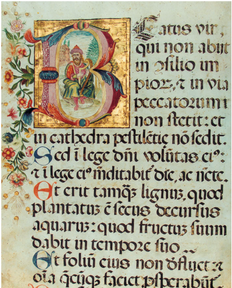 Beatus vir,
qui non abiit
in ɔsilio im
pioꝝ, ⁊ in via
peccatorum
non stetit: et
in cathedra pestilētiē nō sedit.
Sed ī lege dn̄i volūtas ei⁹:
⁊ ī lege ei⁹ meditabit᷑ die, ac nēte.
Et erit tamꝗ̄ lignuʒ, quod
plantatuʒ ē secus decursus
aquaruʒ: quod fructuʒ suum
dabit in tempore suo
Et foliū eius non dɨfluet: ⁊
oīa q̄cūqꝫ faciet prosperabūt᷑